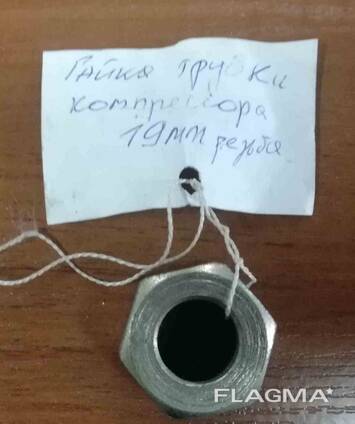 Гайка трубки
компрессора
19мм резьба
FLAGMA